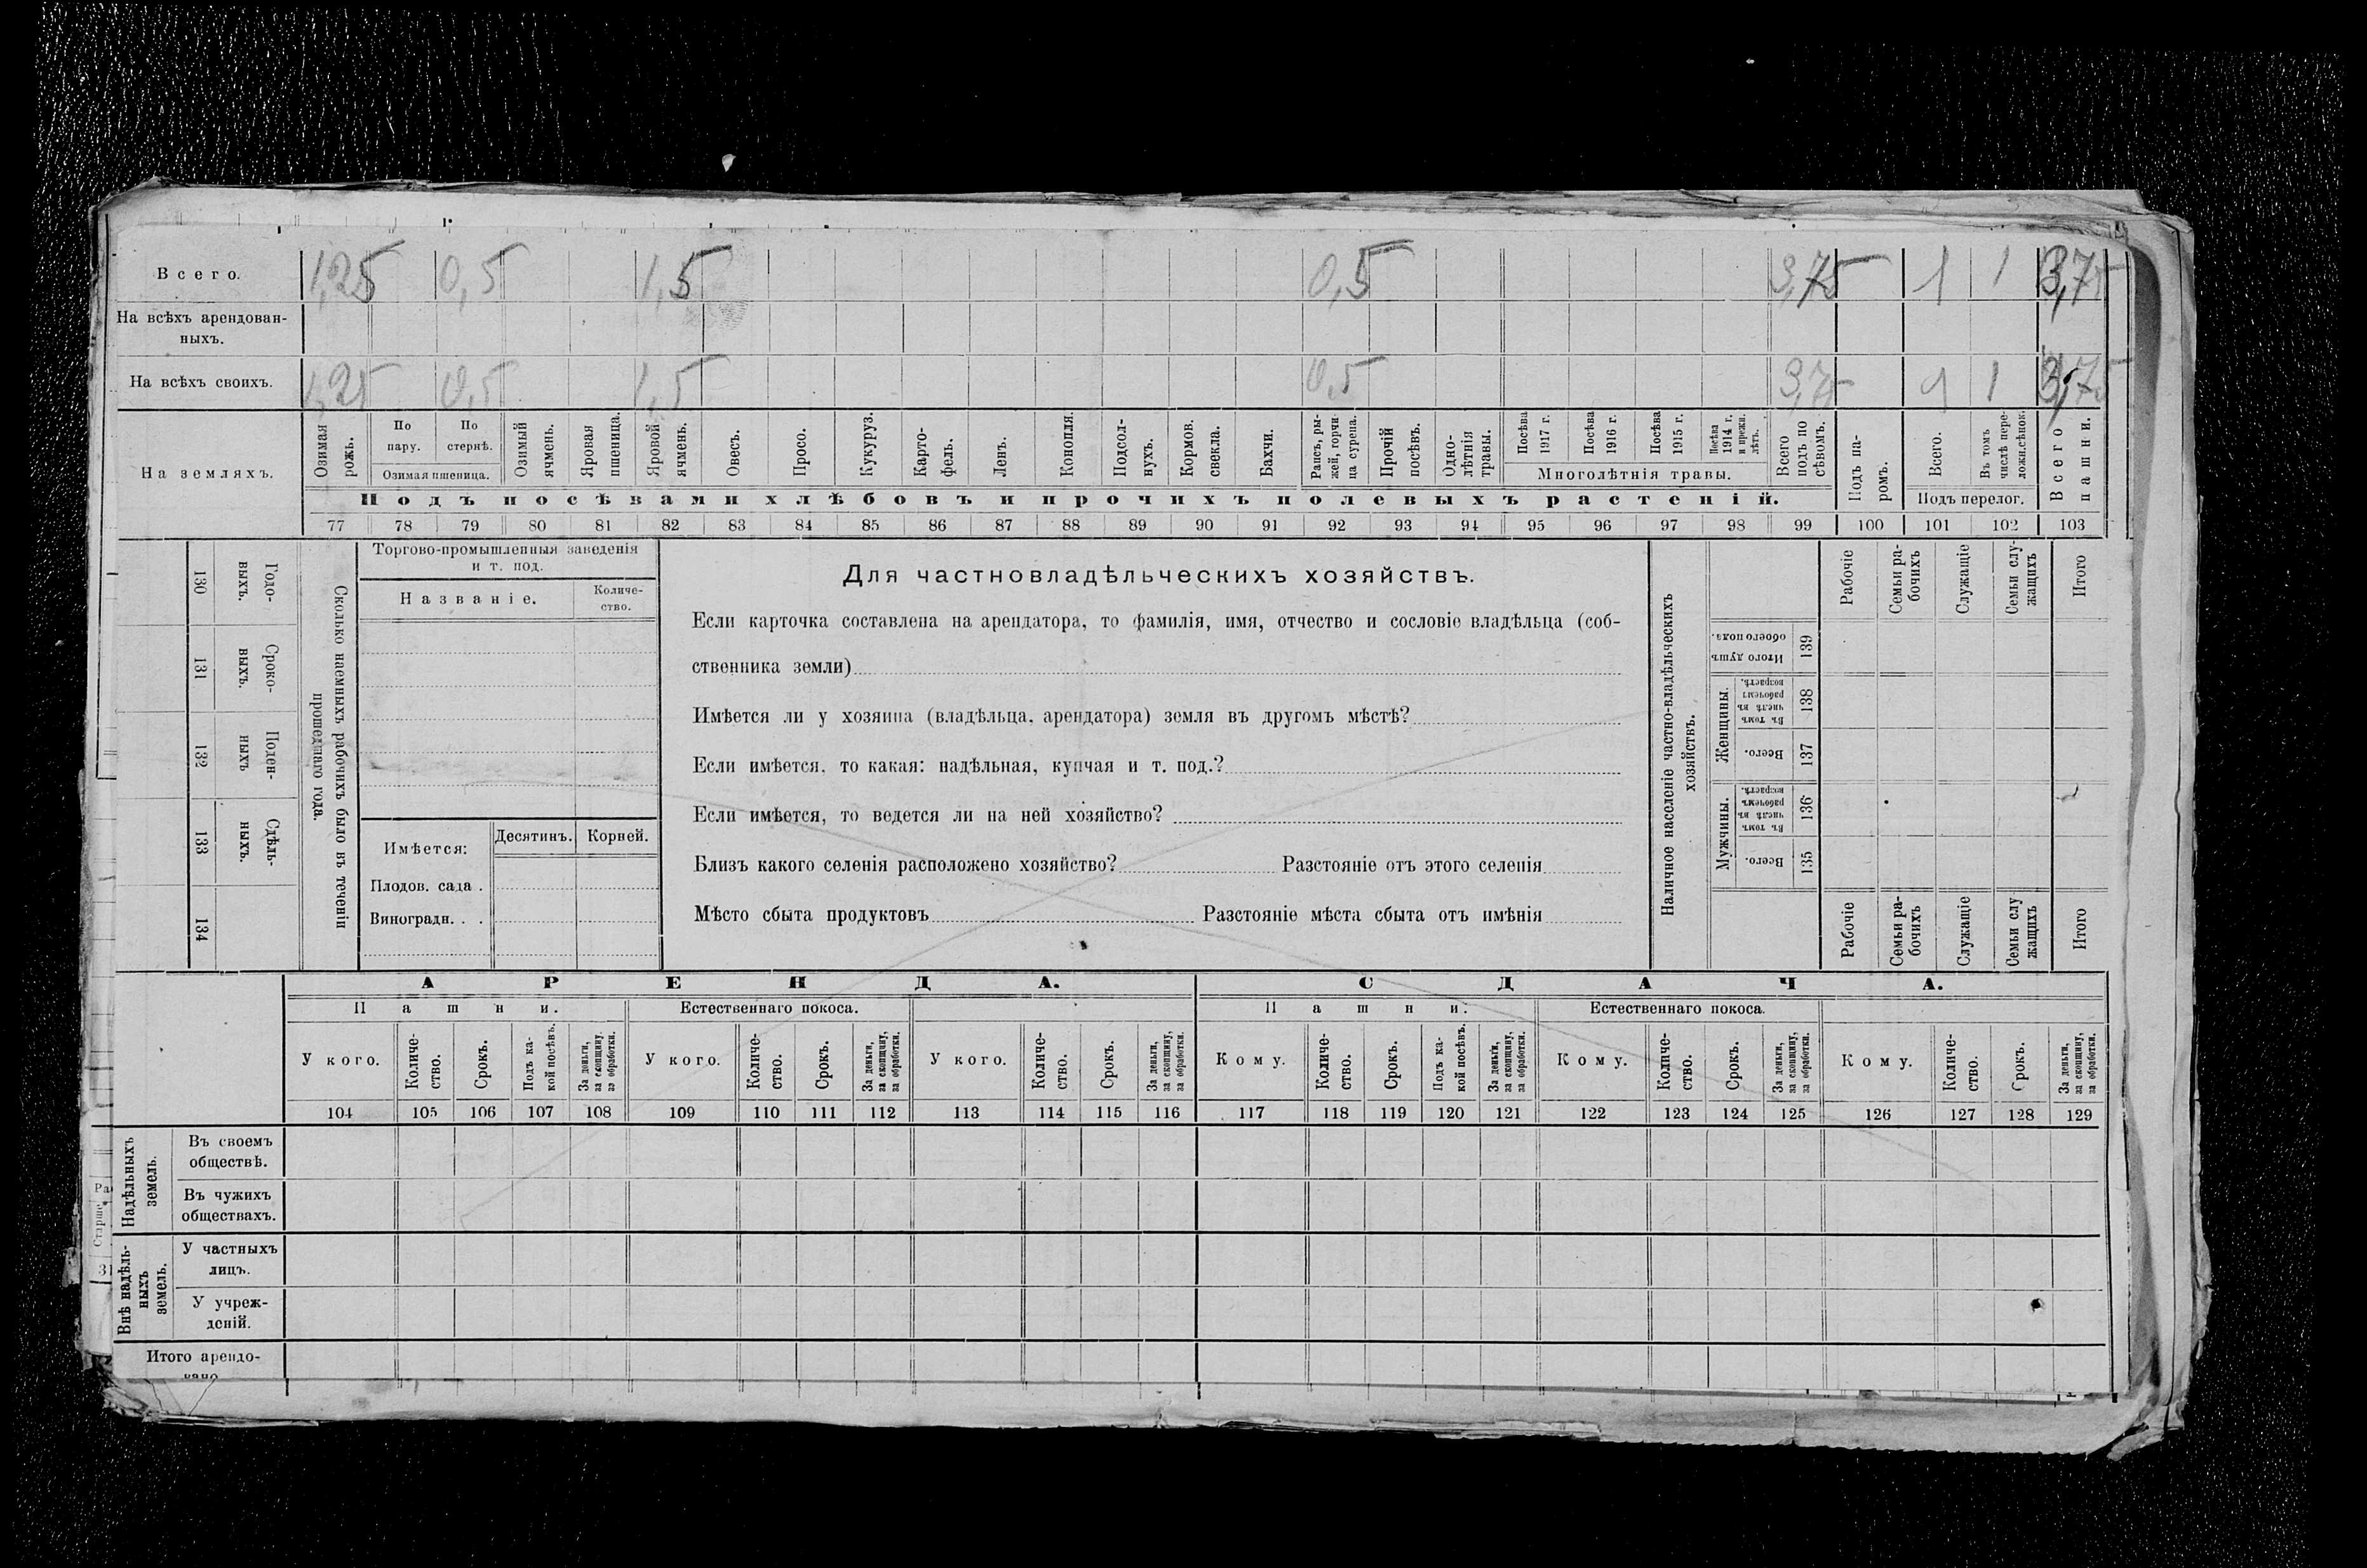 Всего. 1,25 0,5 1,5 0,5 3,75 1 1 3,75
На всѣхъ арендован-
ныхъ.
На всѣхъ своихъ. 1,25 0,5 1,5 0,5 3,75 1 1 3,75
На земляхъ.
Озимая рожь.
По пару.
По стернѣ.
Озимая пшеница.
Озимый ячмень.
Яровая пшеница.
Яровой ячмень.
Овесъ.
Просо.
Кукуруз.
Карто-
фель.
Ленъ.
Конопля.
Подсол-
нухъ.
Кормов.
свекла.
Бахчи.
Рапсъ, ры-
жей, горчи-
ца сурепа.
Прочій
посѣвъ.
Одно-
лѣтнія
травы.
Посѣва
1917 г.
Посѣва
1916 г.
Посѣва
1915 г.
Посѣва
1914 г.
и прежн.
лѣтъ.
Многолѣтнія травы.
Всего
подъ по
сѣвомъ.
Подъ па-
ромъ.
Всего.
Въ томъ
числѣ пере-
ложн.сѣнок.
Подъ перелог.
Всего
пашни.
Подъ посѣвами хлѣбовъ и прочихъ полевыхъ растеній.
77 78 79 80 81 82 83 84 85 86 87 88 89 90 91 92 93 94 95 96 97 98 99 100 101 102 103
130 Годо-
выхъ.
131 Сроко-
выхъ.
132 Поден-
ныхъ
133 Сдѣль-
ныхъ.
134
Сколько наемныхъ рабочихъ было въ теченіи
прошедшаго года.
Торгово-промышленныя заведенія
и т. под.
Названіе.
Количе-
ство.
Имѣется:
Десятинъ.
Корней.
Плодов. сада .
Виноградн. . .
Для частновладѣльческихъ хозяйствъ.
Если карточка составлена на арендатора, то фамилія, имя, отчество и сословіе владѣльца (соб-
ственника земли)
Имѣется ли у хозяина (владѣльца, арендатора) земля въ другомъ мѣстѣ?
Если имѣется, то какая: надѣльная, купчая и т. под.?
Если имѣется, то ведется ли на ней хозяйство?
Близъ какого селенія расположено хозяйство? Разстояніе отъ этого селенія
Мѣсто сбыта продуктовъ Разстояніе мѣста сбыта отъ имѣнія
Наличное населеніе частно-владѣльческихъ
хозяйствъ.
Рабочіе
Семьи ра-
бочихъ
Служащіе
Семьи слу-
жащихъ
Итого
Итого душъ
обоего пола.
139
Женщины.
Въ томъ
числѣ въ
рабочемъ
возрастѣ.
138
Всего.
137
Мужчины.
Въ томъ
числѣ въ
рабочемъ
возрастѣ.
136
Всего.
135
Рабочіе
Семьи ра-
бочихъ
Служащіе
Семьи слу
жащихъ
Итого
АРЕНДА. СДАЧА.
Пашни. Естественнаго покоса. Пашни. Естественнаго покоса.
У кого.
Количе-
ство.
Срокъ.
Подъ ка-
кой посѣвъ.
За деньги,
за скопщину,
за обработки.
У кого.
Количе-
ство.
Срокъ.
За деньги,
за скопщину,
за обработки.
У кого.
Количе-
ство.
Срокъ.
За деньги,
за скопщину,
за обработки.
Кому.
Количе-
ство.
Срокъ.
Подъ ка-
кой посѣвъ.
За деньги,
за скопщину,
за обработки.
Кому.
Количе-
ство.
Срокъ.
За деньги,
за скопщину,
за обработки.
Кому.
Количе-
ство.
Срокъ.
За деньги,
за скопщину,
за обработки.
104 105 106 107 108 109 110 111 112 113 114 115 116 117 118 119 120 121 122 123 124 125 126 127 128 129
Надѣльныхъ
земель.
Въ своемъ
обществѣ.
Въ чужихъ
обществахъ.
Внѣ надѣль-
ныхъ
земель.
У частныхъ
лицъ.
У учреж-
деній.
Итого арендо-
вано
Старше
31